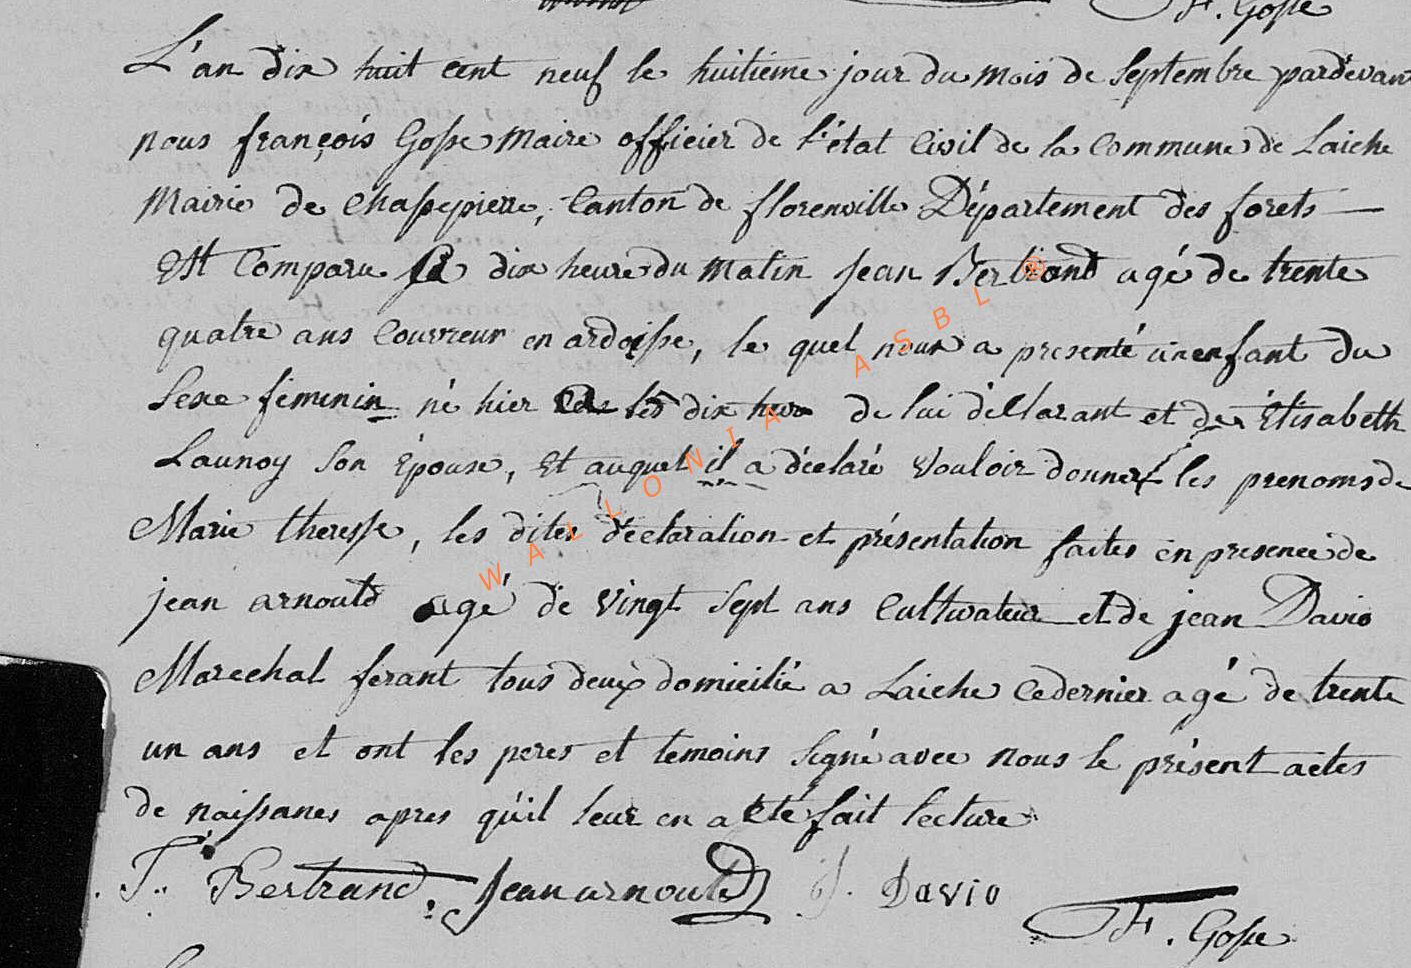 F. Gosse
L'an dix huit cent neuf le huitieme jour du mois de Septembre pardevant
nous françois Gosse maire officier de l'état Civil de la Commune de Laiche
Mairie de Chassepierre, Canton de florenville Département des forets —
Est Comparu a dix heure du matin Jean Bertrand agé de trente
quatre ans Couvreur en ardoisse, le quel nous a presenté un enfant du
Sexe féminin né hier les dix heur de lui déclarant et de Élisabeth
Launoy Son Épouse, Et auquel il a déclaré Vouloir donner les prenoms de
Marie theresse, les dites déclaration et présentation faites en presence de
jean arnould agé de Vingt Sept ans Cultivateur et de jean Davio
Marechal ferant tous deux domicilié a Laiche Ce dernier agé de trente
un ans et ont les peres et temoins Signé avec nous le présent actes
de naissances apres qu'il leur en a Eté fait lecture
J. Bertrand. Jean arnould J. Davio
F. Gosse
WALLONIA ASBL ®